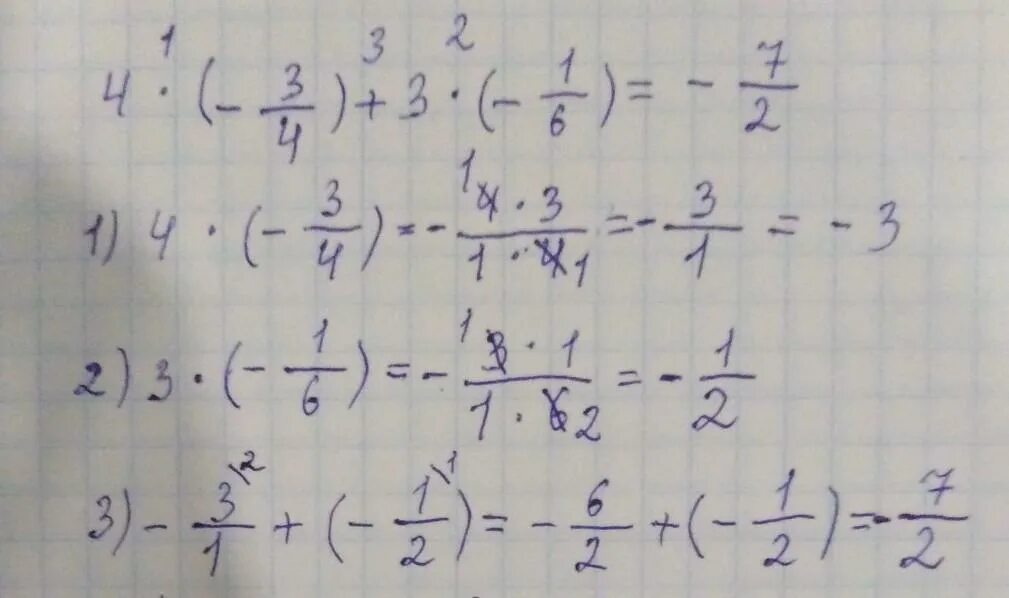 4 ·¹ (- 3/4) +³ 3 ·² (- 1/6) = - 7/2
1) 4 · (- 3/4) = - ¹4 · 3 / 1 · 4₁ = - 3/1 = - 3
2) 3 · (- 1/6) = - ¹3 · 1 / 1 · 6₂ = - 1/2
3) - 3\²/1 + (- 1\¹/2) = - 6/2 + (- 1/2) = - 7/2